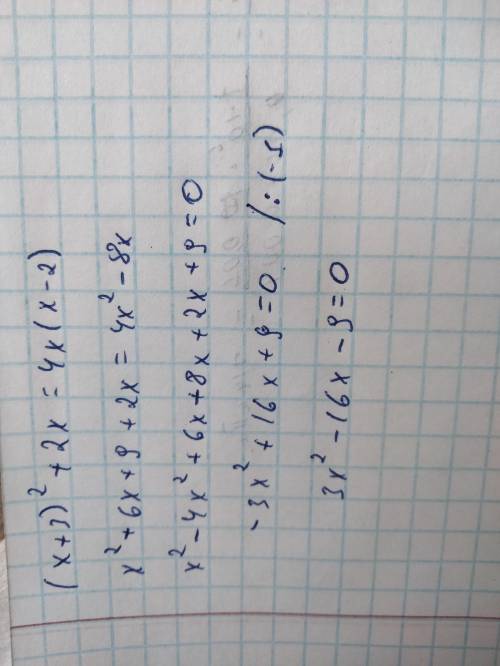 (x+3)² + 2x = 4x(x-2)
x² + 6x + 9 + 2x = 4x² - 8x
x² - 4x² + 6x + 8x + 2x + 9 = 0
-3x² + 16x + 9 = 0 /:(-1)
3x² - 16x - 9 = 0